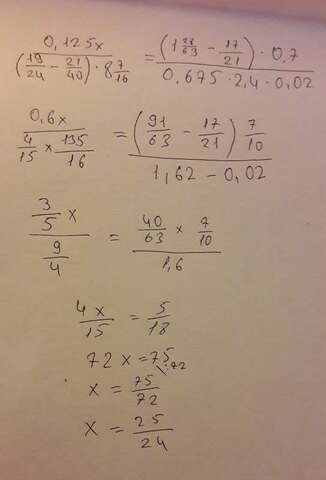 0,125x / (19/24 - 21/40) · 8 7/16 = (1 28/63 - 17/21) · 0,7 / 0,675 · 2,4 · 0,02
0,6x / 4/15 × 135/16 = (91/63 - 17/21) 7/10 / 1,62 - 0,02
3/5 x / 9/4 = 40/63 × 7/10 / 1,6
4x/15 = 5/18
72x = 75 :72
x = 75/72
x = 25/24